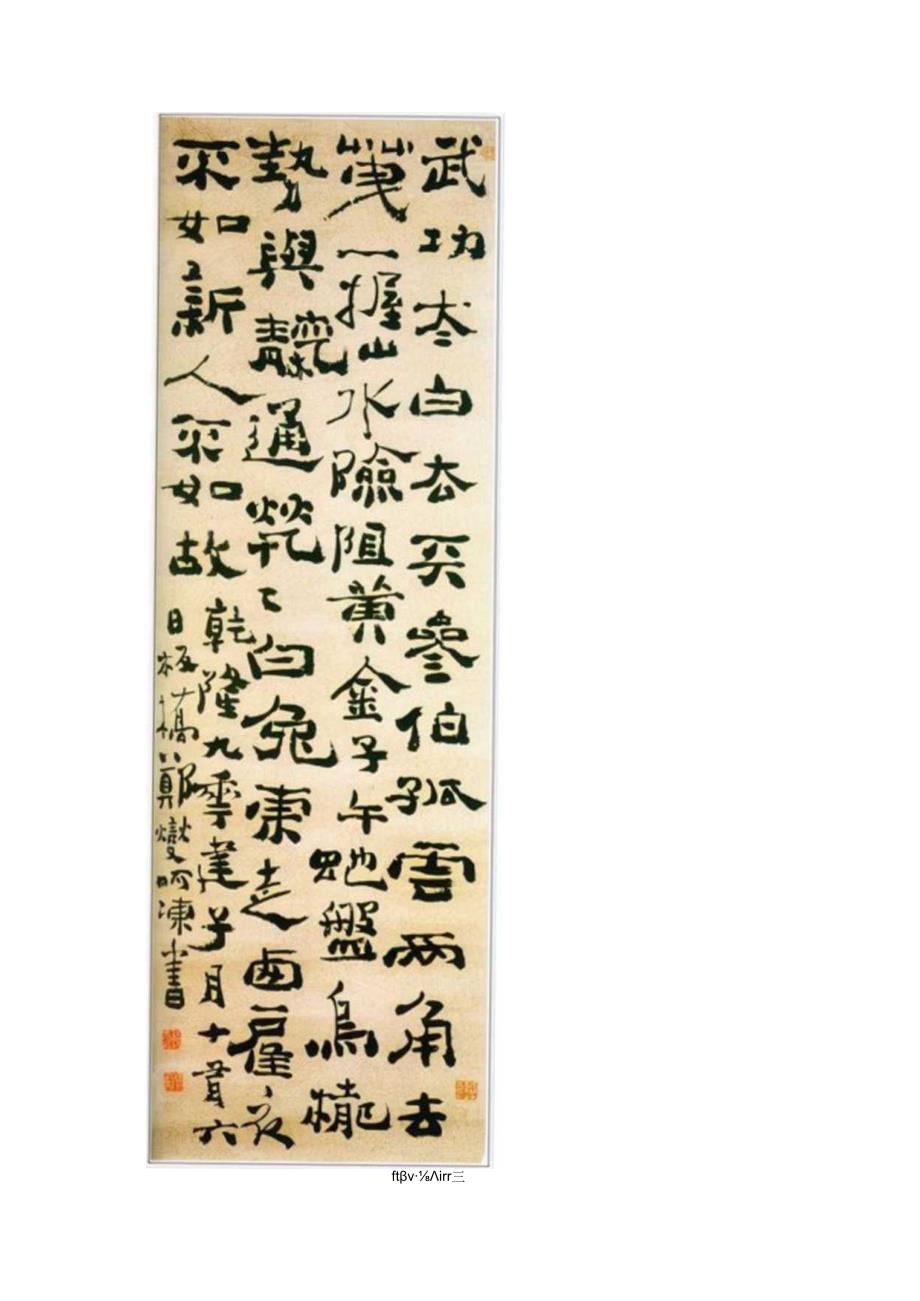 武功太白去天參伯孤雲兩角去
一握山水險阻黃金子午虵盤烏櫳
勢與靝通煢〻白兔東走西雇衣
不如新人不如故乾隆九年建子月十有六
日板橋鄭燮呵凍書
ftβv·⅛Λirr三